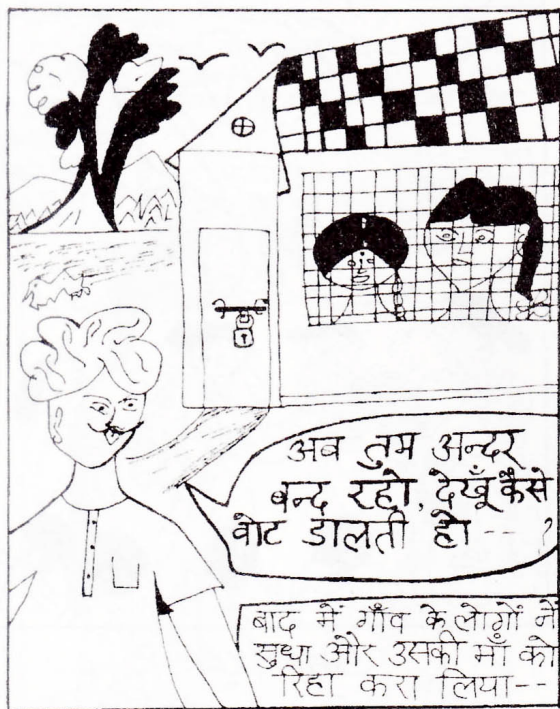 अब तुम अन्दर
बन्द रहो, देखूँ कैसे
वोट डालती हो -- ?
बाद में गाँव के लोगों नें
सुधा और उसकी माँ को
रिहा करा लिया--